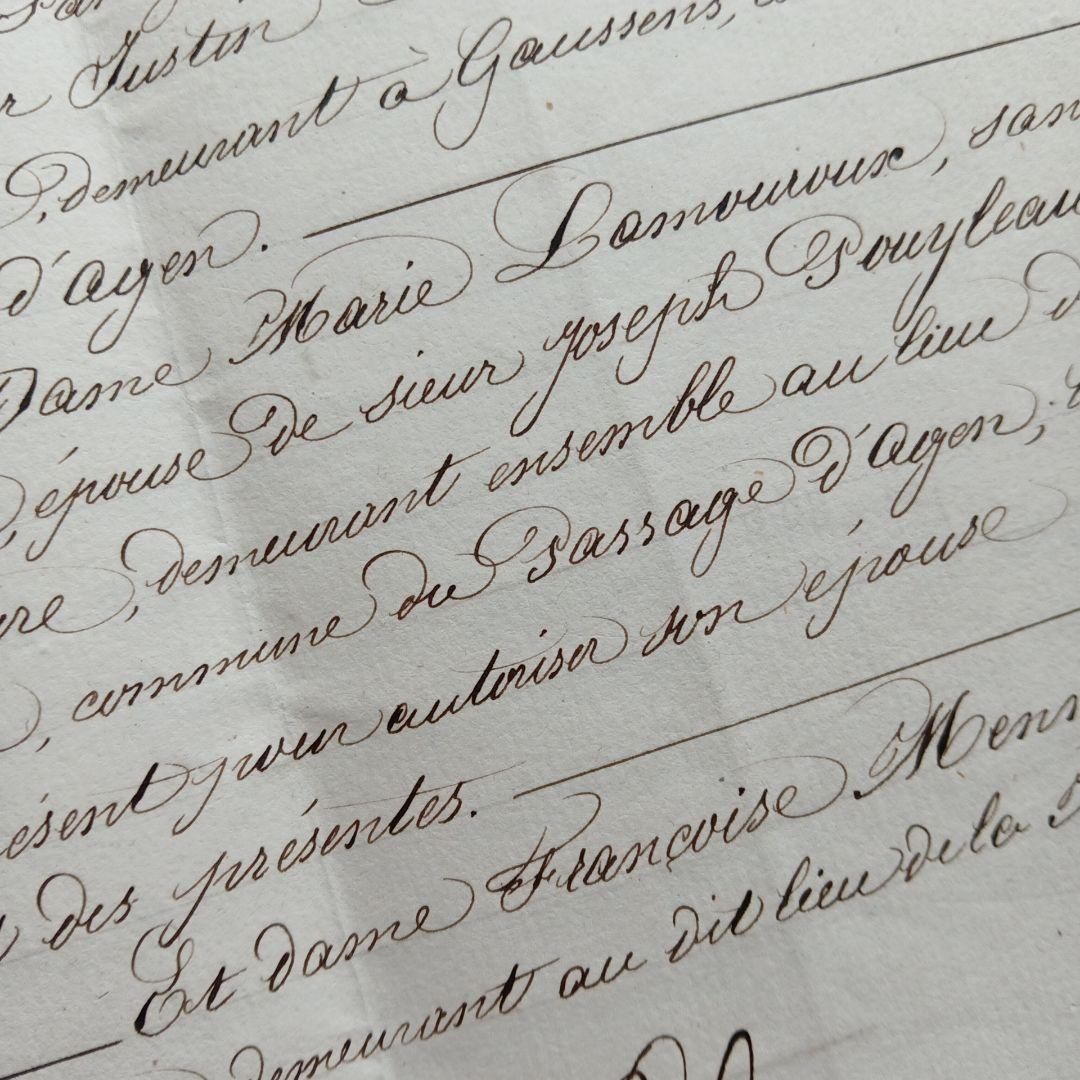 Justin
, demeurant à Gaussens,
d'agen.
Dame Marie Lamouroux, san
, épouse de sieur Joseph Pouyleau
, demeurant ensemble au lieu
, commune du Passage d'agen;
ésent pour autoriser son épouse
des présentes.
Et dame Françoise Men
demeurant au dit lieu de la